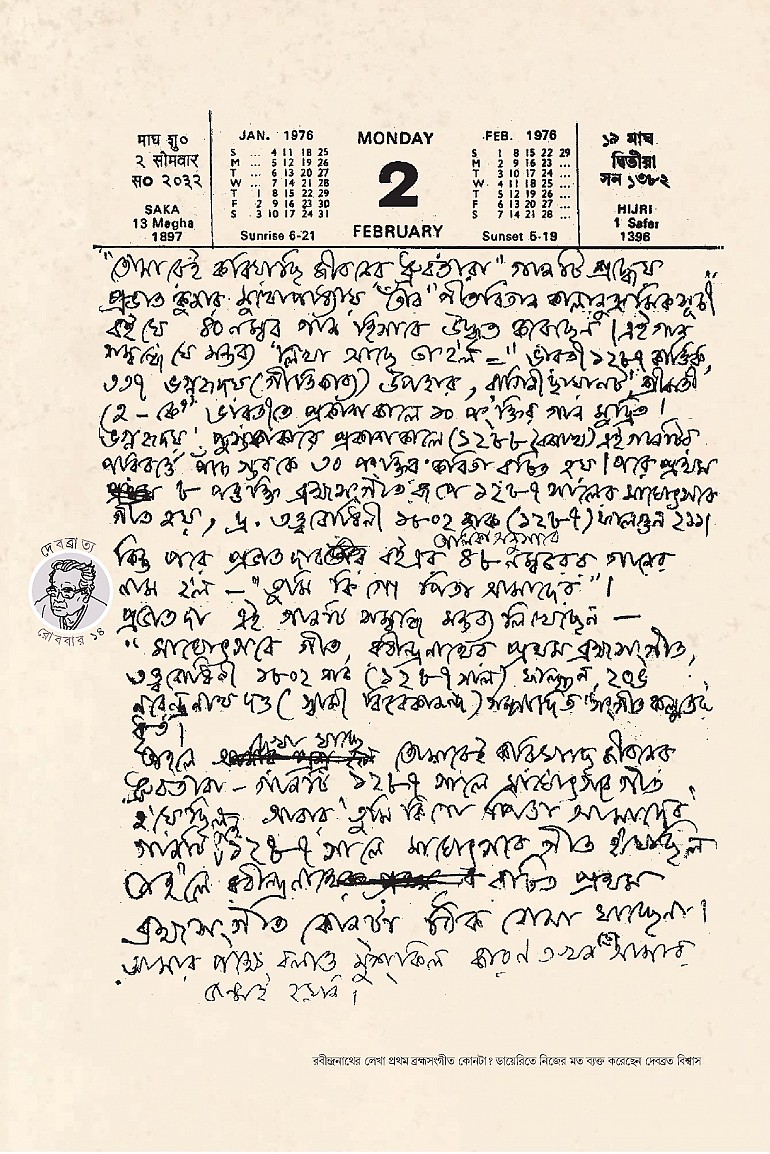 माघ शु०
२ सोमवार
स० २०३२
SAKA
13 Magha
1897
JAN. 1976
S ... 4 11 18 25
M ... 5 12 19 26
T ... 6 13 20 27
W ... 7 14 21 28
T 1 8 15 22 29
F 2 9 16 23 30
S 3 10 17 24 31
Sunrise 6-21
MONDAY
2
FEBRUARY
FEB. 1976
S 1 8 15 22 29
M 2 9 16 23 ...
T 3 10 17 24 ...
W 4 11 18 25 ...
T 5 12 19 26 ...
F 6 13 20 27 ...
S 7 14 21 28 ...
Sunset 5-19
১৯ মাঘ
দ্বিতীয়া
সন ১৩৮২
HIJRI
1 Safar
1396
"তোমারেই করিয়াছি জীবনের ধ্রুবতারা" গানটি শ্রদ্ধেয়
প্রভাত কুমার মুখোপাধ্যায় তাঁর "গীতবিতান কালানুক্রমিক সূচী"
বইয়ে ৪০ নম্বর গান হিসাবে উদ্ধৃত করেছেন। এই গান
সম্বন্ধে যে মন্তব্য লিখা আছে তা হল = "ভারতী ১২৮৭ কার্তিক,
৩৩৭ ভগ্নহৃদয় (গীতিকাব্য) উপহার, রাগিনী ছায়ানট, শ্রীমতী
হে - কে" ভারতীতে প্রকাশকালে ১০ পংক্তির গান মুদ্রিত।
ভগ্নহৃদয় পুস্তকাকারে প্রকাশকালে (১২৮৮ বৈশাখ) এই গানটির
পরিবর্ত্তে পাঁচ স্তবকে ৩০ পংক্তির কবিতা রচিত হয়। পরে প্রথম
৮ পংক্তি ব্রহ্মসংগীত রূপে ১২৮৭ সালের মাঘোৎসবে
গীত হয়, দ্র. তত্ত্ববোধিনী ১৮০২ শক (১২৮৭) ফাল্গুন ২১১।
কিন্তু পরে প্রভাতদার বইএর তালিকা অনুসারে ৪৮ নম্বরের গানের
নাম হল - "তুমি কি গো পিতা আমাদের"।
প্রভাতদা এই গানটি সম্বন্ধে মন্তব্য লিখেছেন —
"মাঘোৎসবে গীত, রবীন্দ্রনাথের প্রথম ব্রহ্মসংগীত,
তত্ত্ববোধিনী ১৮০২ শক (১২৮৭ সাল) ফাল্গুন, ২০৬
নরেন্দ্রনাথ দত্ত (স্বামী বিবেকানন্দ) সম্পাদিত সংগীত কল্পতরু
ধৃত।
তাহলে দেখা যাচ্ছে তোমারেই করিয়াছি জীবনের
ধ্রুবতারা - গানটি ১২৮৭ সালে মাঘোৎসবে গীত
হয়েছিল, আবার "তুমি কি গো পিতা আমাদের
গানটিও ১২৮৭ সালে মাঘোৎসবে গীত হয়েছিল
তাহলে রবীন্দ্রনাথের রচিত প্রথম
ব্রহ্মসংগীত কোনটা ঠিক বোঝা যাচ্ছেনা।
আমার পক্ষে বলাও মুশ্কিল কারণ তখন তো আমার
জন্মই হয়নি।
দেবব্রত্য
রোববার ১৪
রবীন্দ্রনাথের লেখা প্রথম ব্রহ্মসংগীত কোনটা? ডায়েরিতে নিজের মত ব্যক্ত করেছেন দেবব্রত বিশ্বাস